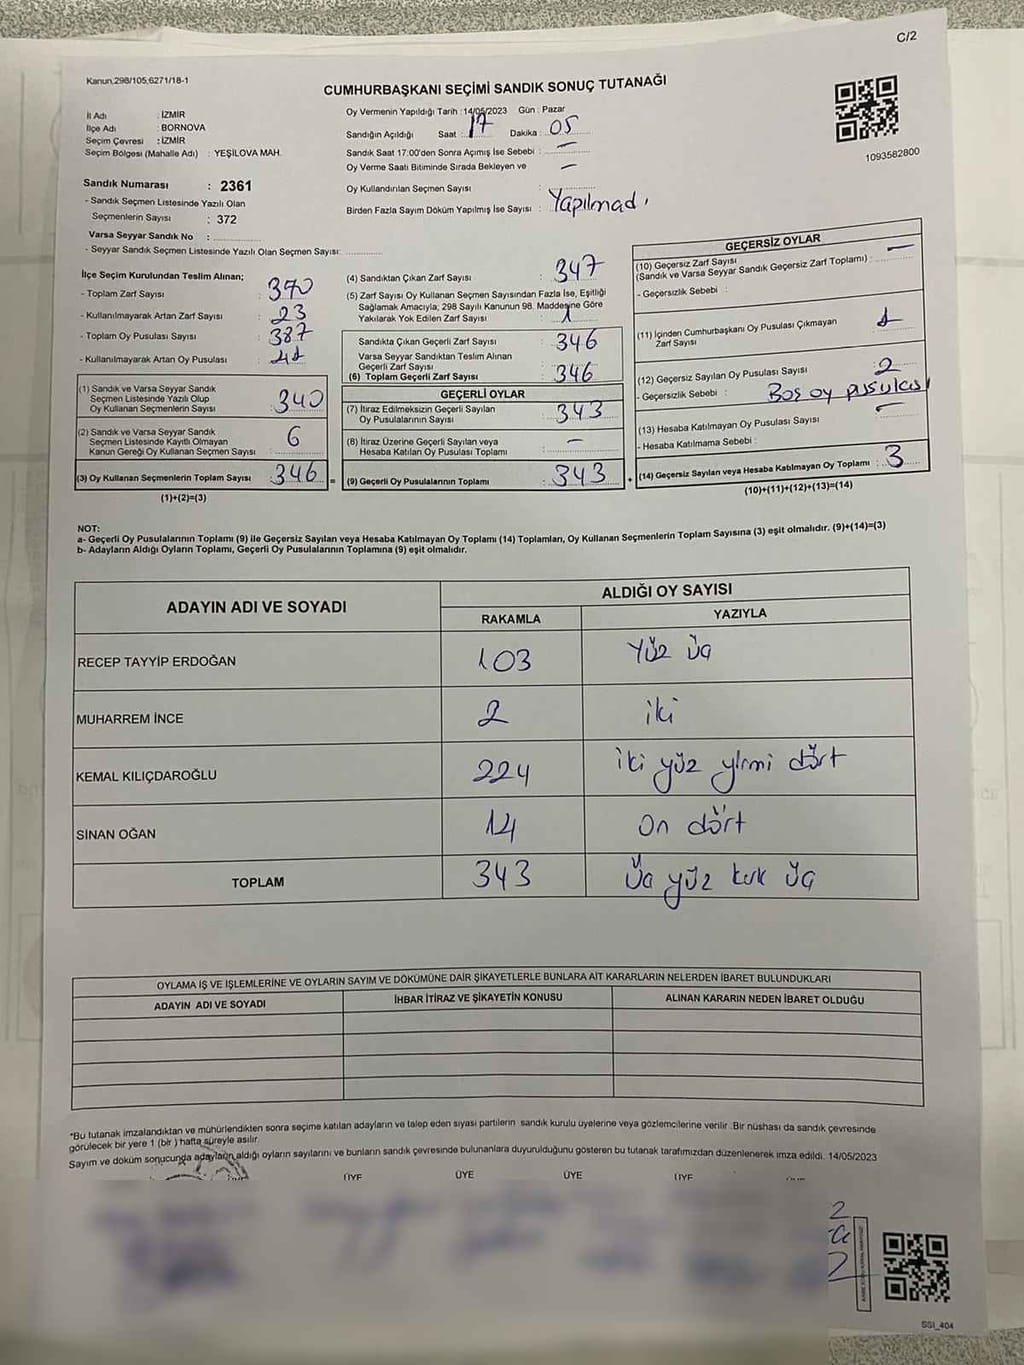 C/2
Kanun,298/105,6271/18-1
CUMHURBAŞKANI SEÇİMİ SANDIK SONUÇ TUTANAĞI
İl Adı : İZMİR
İlçe Adı : BORNOVA
Seçim Çevresi : İZMİR
Seçim Bölgesi (Mahalle Adı) : YEŞİLOVA MAH.
Oy Vermenin Yapıldığı Tarih :14/05/2023 Gün : Pazar
Sandığın Açıldığı Saat : 17 Dakika : 05
Sandık Saat 17:00'den Sonra Açımış İse Sebebi : —
Oy Verme Saati Bitiminde Sırada Bekleyen ve —
Oy Kullandırılan Seçmen Sayısı :
Birden Fazla Sayım Döküm Yapılmış İse Sayısı : Yapılmadı
1093582800
Sandık Numarası : 2361
- Sandık Seçmen Listesinde Yazılı Olan
Seçmenlerin Sayısı : 372
Varsa Seyyar Sandık No :
- Seyyar Sandık Seçmen Listesinde Yazılı Olan Seçmen Sayısı:
İlçe Seçim Kurulundan Teslim Alınan;
- Toplam Zarf Sayısı : 370
- Kullanılmayarak Artan Zarf Sayısı : 23
- Toplam Oy Pusulası Sayısı : 387
- Kullanılmayarak Artan Oy Pusulası :
(1) Sandık ve Varsa Seyyar Sandık
Seçmen Listesinde Yazılı Olup
Oy Kullanan Seçmenlerin Sayısı : 340
(2) Sandık ve Varsa Seyyar Sandık
Seçmen Listesinde Kayıtlı Olmayan
Kanun Gereği Oy Kullanan Seçmen Sayısı : 6
(3) Oy Kullanan Seçmenlerin Toplam Sayısı : 346
(1)+(2)=(3)
(4) Sandıktan Çıkan Zarf Sayısı : 347
(5) Zarf Sayısı Oy Kullanan Seçmen Sayısından Fazla İse, Eşitliği
Sağlamak Amacıyla, 298 Sayılı Kanunun 98. Maddesine Göre
Yakılarak Yok Edilen Zarf Sayısı : 1
Sandıkta Çıkan Geçerli Zarf Sayısı : 346
Varsa Seyyar Sandıktan Teslim Alınan
Geçerli Zarf Sayısı :
(6) Toplam Geçerli Zarf Sayısı : 346
GEÇERLİ OYLAR
(7) İtiraz Edilmeksizin Geçerli Sayılan
Oy Pusulalarının Sayısı : 343
(8) İtiraz Üzerine Geçerli Sayılan veya
Hesaba Katılan Oy Pusulası Toplamı : —
(9) Geçerli Oy Pusulalarının Toplamı : 343
GEÇERSİZ OYLAR
(10) Geçersiz Zarf Sayısı
(Sandık ve Varsa Seyyar Sandık Geçersiz Zarf Toplamı) : —
- Geçersizlik Sebebi :
(11) İçinden Cumhurbaşkanı Oy Pusulası Çıkmayan
Zarf Sayısı : 1
(12) Geçersiz Sayılan Oy Pusulası Sayısı : 2
- Geçersizlik Sebebi : Boş oy pusulası
(13) Hesaba Katılmayan Oy Pusulası Sayısı : —
- Hesaba Katılmama Sebebi :
(14) Geçersiz Sayılan veya Hesaba Katılmayan Oy Toplamı : 3
(10)+(11)+(12)+(13)=(14)
NOT:
a- Geçerli Oy Pusulalarının Toplamı (9) ile Geçersiz Sayılan veya Hesaba Katılmayan Oy Toplamı (14) Toplamları, Oy Kullanan Seçmenlerin Toplam Sayısına (3) eşit olmalıdır. (9)+(14)=(3)
b- Adayların Aldığı Oyların Toplamı, Geçerli Oy Pusulalarının Toplamına (9) eşit olmalıdır.
ADAYIN ADI VE SOYADI
ALDIĞI OY SAYISI
RAKAMLA YAZIYLA
RECEP TAYYİP ERDOĞAN 103 Yüz üç
MUHARREM İNCE 2 iki
KEMAL KILIÇDAROĞLU 224 iki yüz yirmi dört
SİNAN OĞAN 14 On dört
TOPLAM 343 Üç yüz kırk üç
OYLAMA İŞ VE İŞLEMLERİNE VE OYLARIN SAYIM VE DÖKÜMÜNE DAİR ŞİKAYETLERLE BUNLARA AİT KARARLARIN NELERDEN İBARET BULUNDUKLARI
ADAYIN ADI VE SOYADI İHBAR İTİRAZ VE ŞİKAYETİN KONUSU ALINAN KARARIN NEDEN İBARET OLDUĞU
*Bu tutanak imzalandıktan ve mühürlendikten sonra seçime katılan adayların ve talep eden siyasi partilerin sandık kurulu üyelerine veya gözlemcilerine verilir. Bir nüshası da sandık çevresinde
görülecek bir yere 1 (bir ) hafta süreyle asılır.
Sayım ve döküm sonucunda adayların aldığı oyların sayılarını ve bunların sandık çevresinde bulunanlara duyurulduğunu gösteren bu tutanak tarafımızdan düzenlenerek imza edildi. 14/05/2023
ÜYE ÜYE ÜYE ÜYE
SSI_404